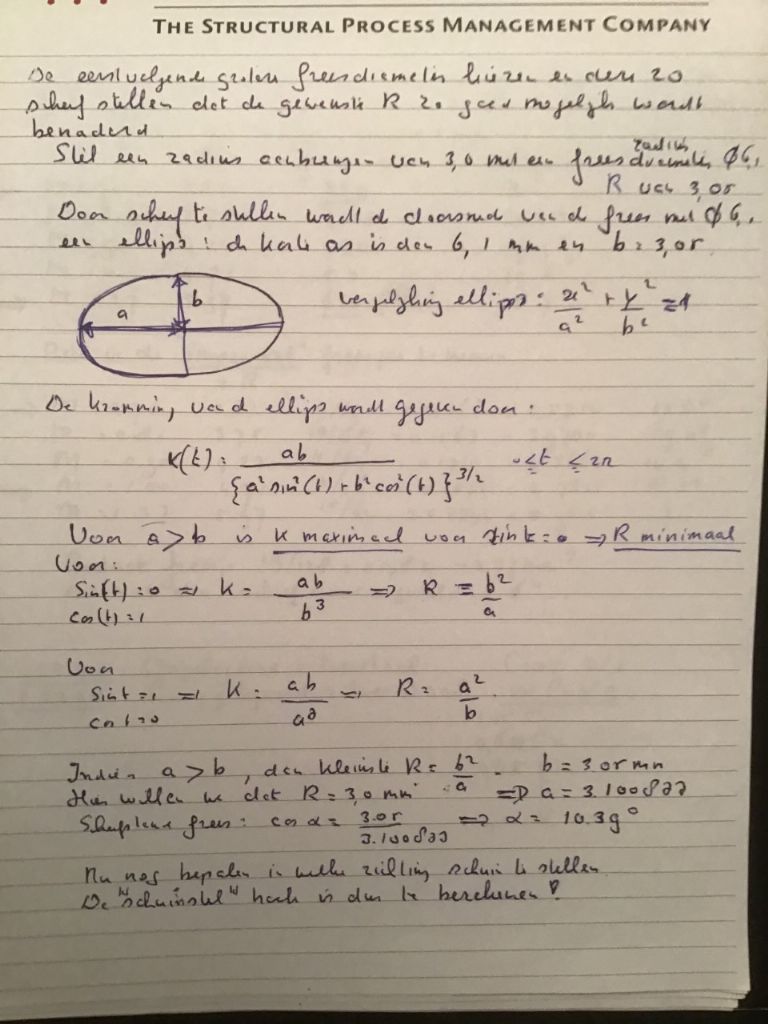 THE STRUCTURAL PROCESS MANAGEMENT COMPANY
De eerstvolgende grotere freesdiameter kiezen en deze zo
scheef stellen dat de gewenste R zo goed mogelijk wordt
benaderd
Stel een radius aanbrengen van 3,0 met een frees radius Ø6,1
R van 3,05
Door scheef te stellen wordt de doorsned van de frees met Ø6,1
een ellips: de korte as is dan 6,1 mm en b = 3,05
a b
vergelijking ellips: x²/a² + y²/b² = 1
De kromming van de ellips wordt gegeven door:
K(t) = ab / {a² sin²(t) + b² cos²(t)}^3/2 0 ≤ t ≤ 2π
Voor a > b is K maximaal voor sin t = 0 ⇒ R minimaal
Voor:
Sin(t) = 0 ⇒ K = ab / b³ ⇒ R = b²/a
cos(t) = 1
Voor
Sin t = 1 ⇒ K = ab / a³ ⇒ R = a²/b
cos t = 0
Indien a > b, dan kleinste R = b²/a. b = 3.05 mm
Hier willen we dat R = 3,0 mm ⇒ a = 3.1008
frees: cos α = 3.05 / 3.1008 ⇒ α = 10.39°
Nu nog bepalen in welke schuin te stellen.
De "schuinstel" hoek is dus te berekenen!